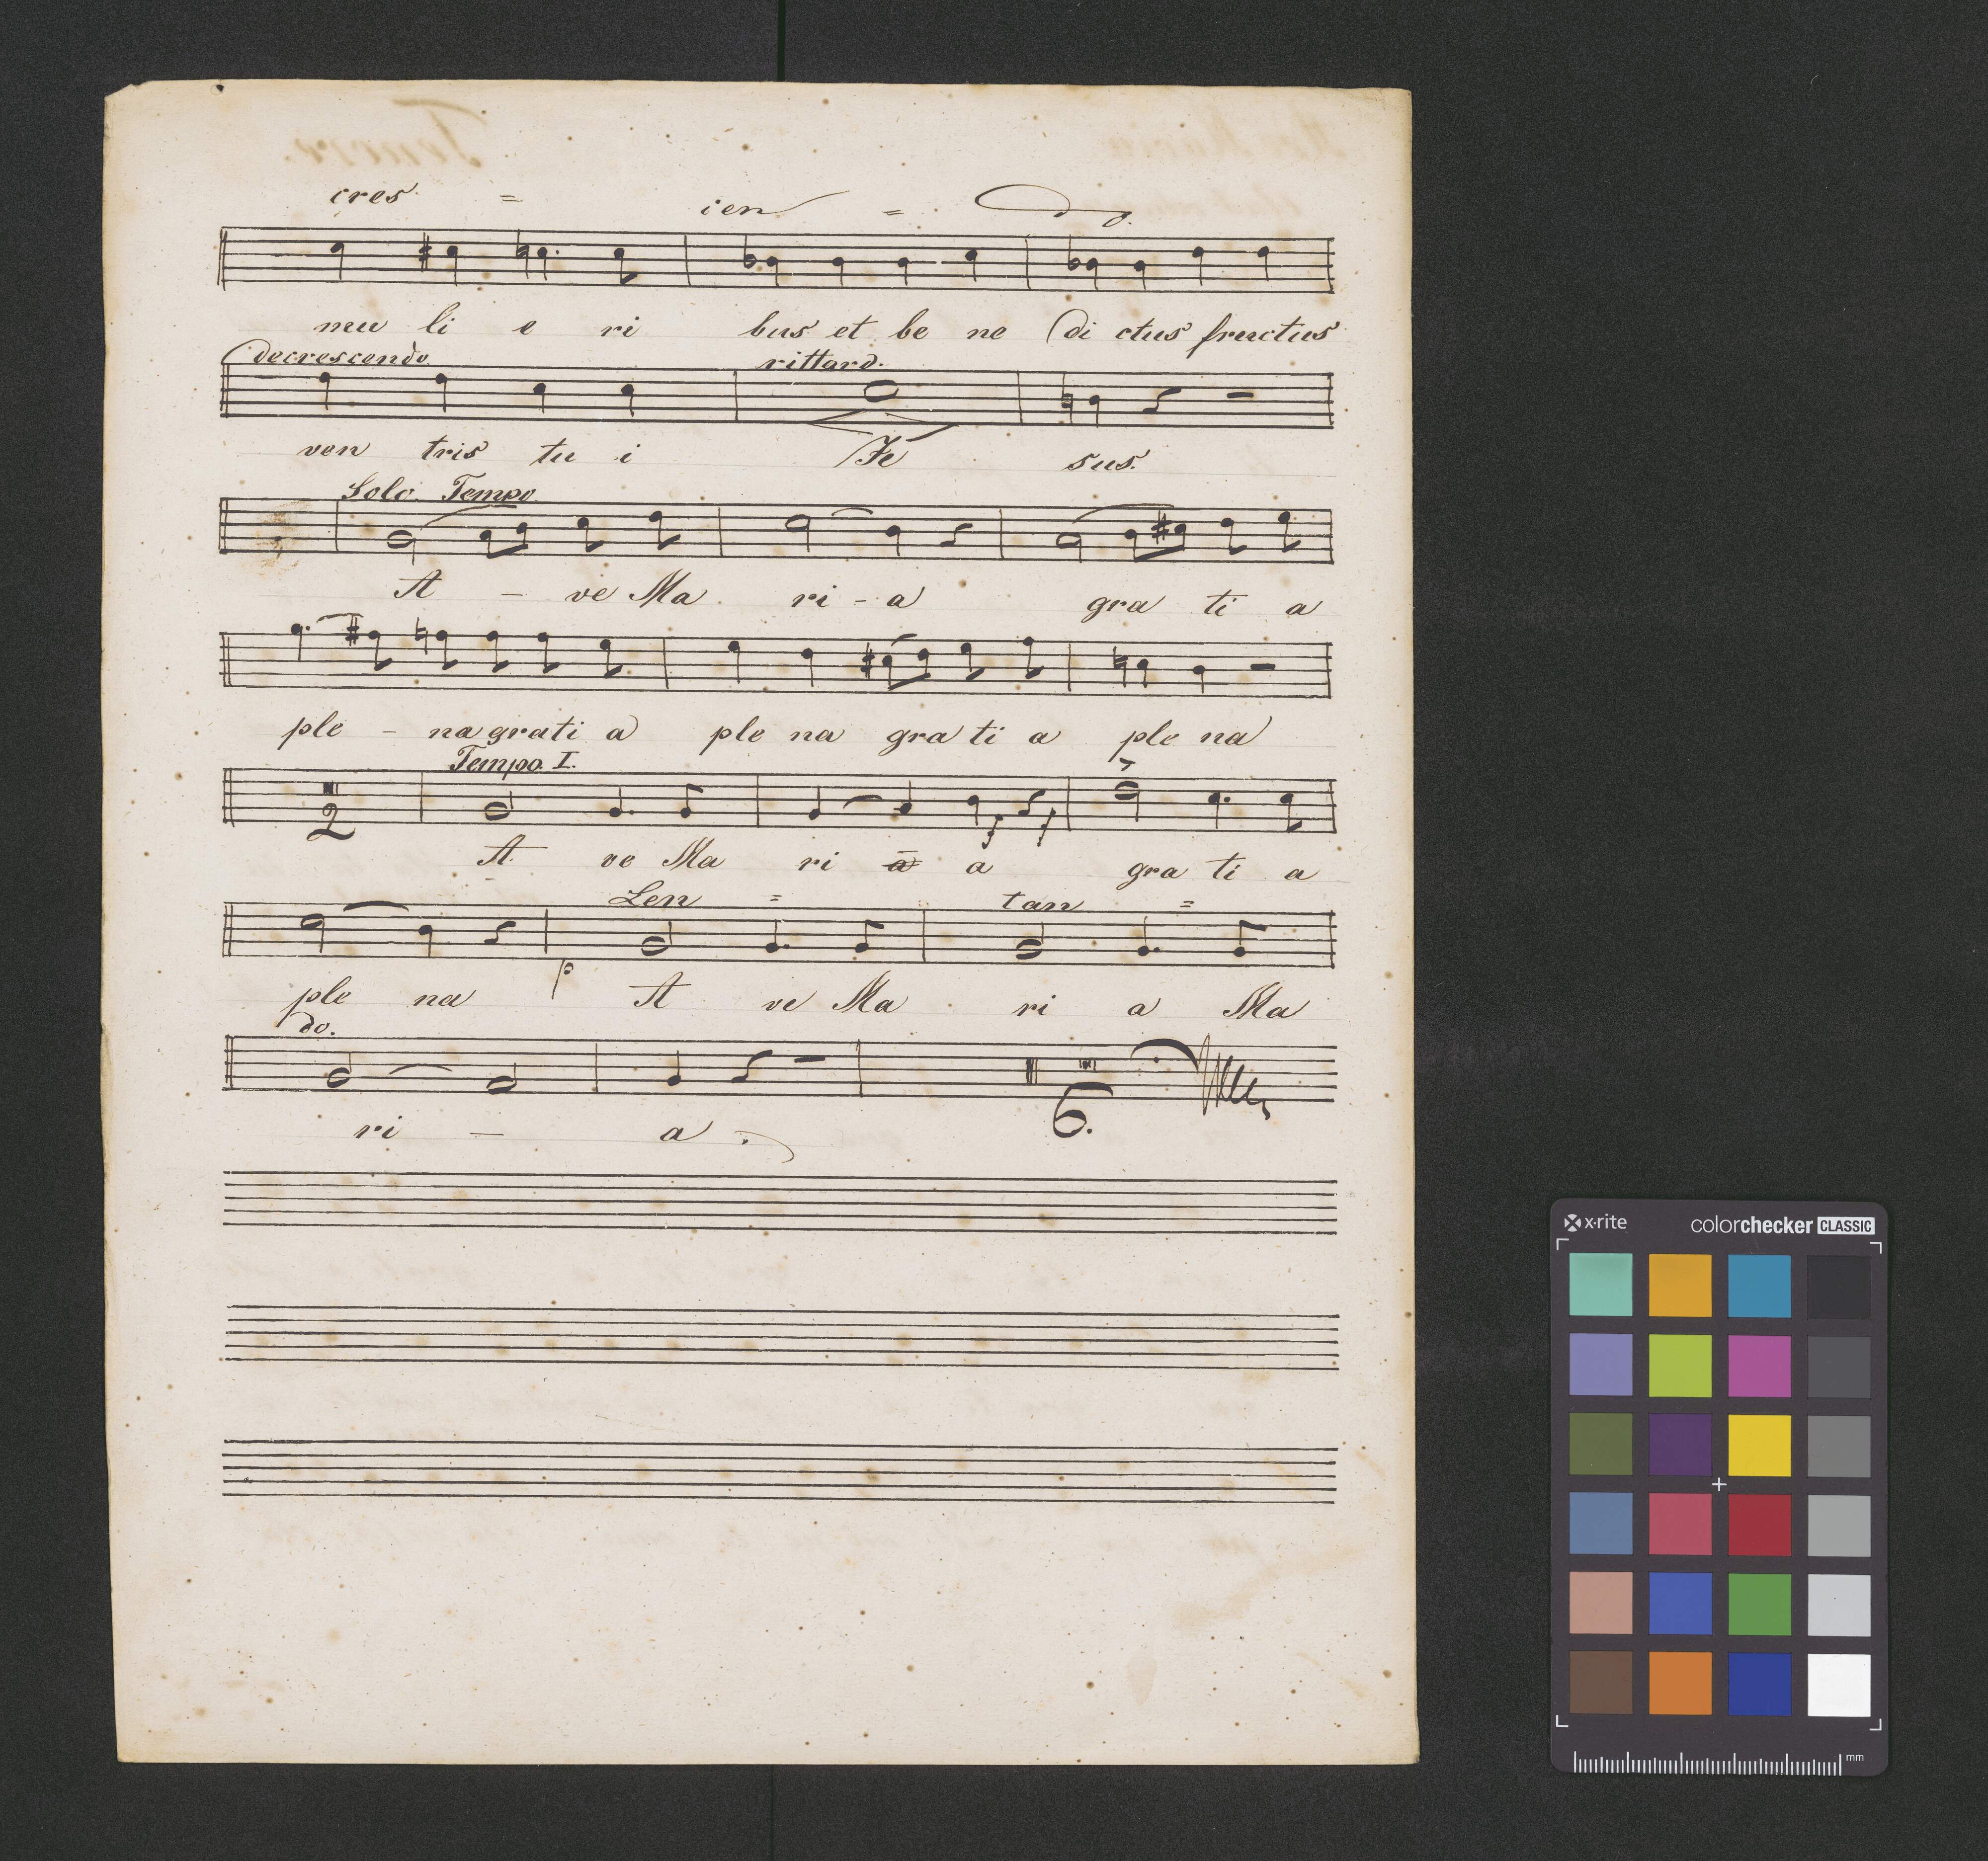 cres = cen = do.
mu li e ri bus et be ne di ctus fructus
decrescendo rittard.
ven tris tu i Je sus.
Solo Tempo
A - ve Ma ri - a gra ti a
ple - na grati a ple na gra ti a ple na
Tempo I.
2
f f
A ve Ma ri a a gra ti a
Len = tan =
p
ple na A ve Ma ri a Ma
do.
6.
ri - a.
x·rite colorchecker CLASSIC
mm